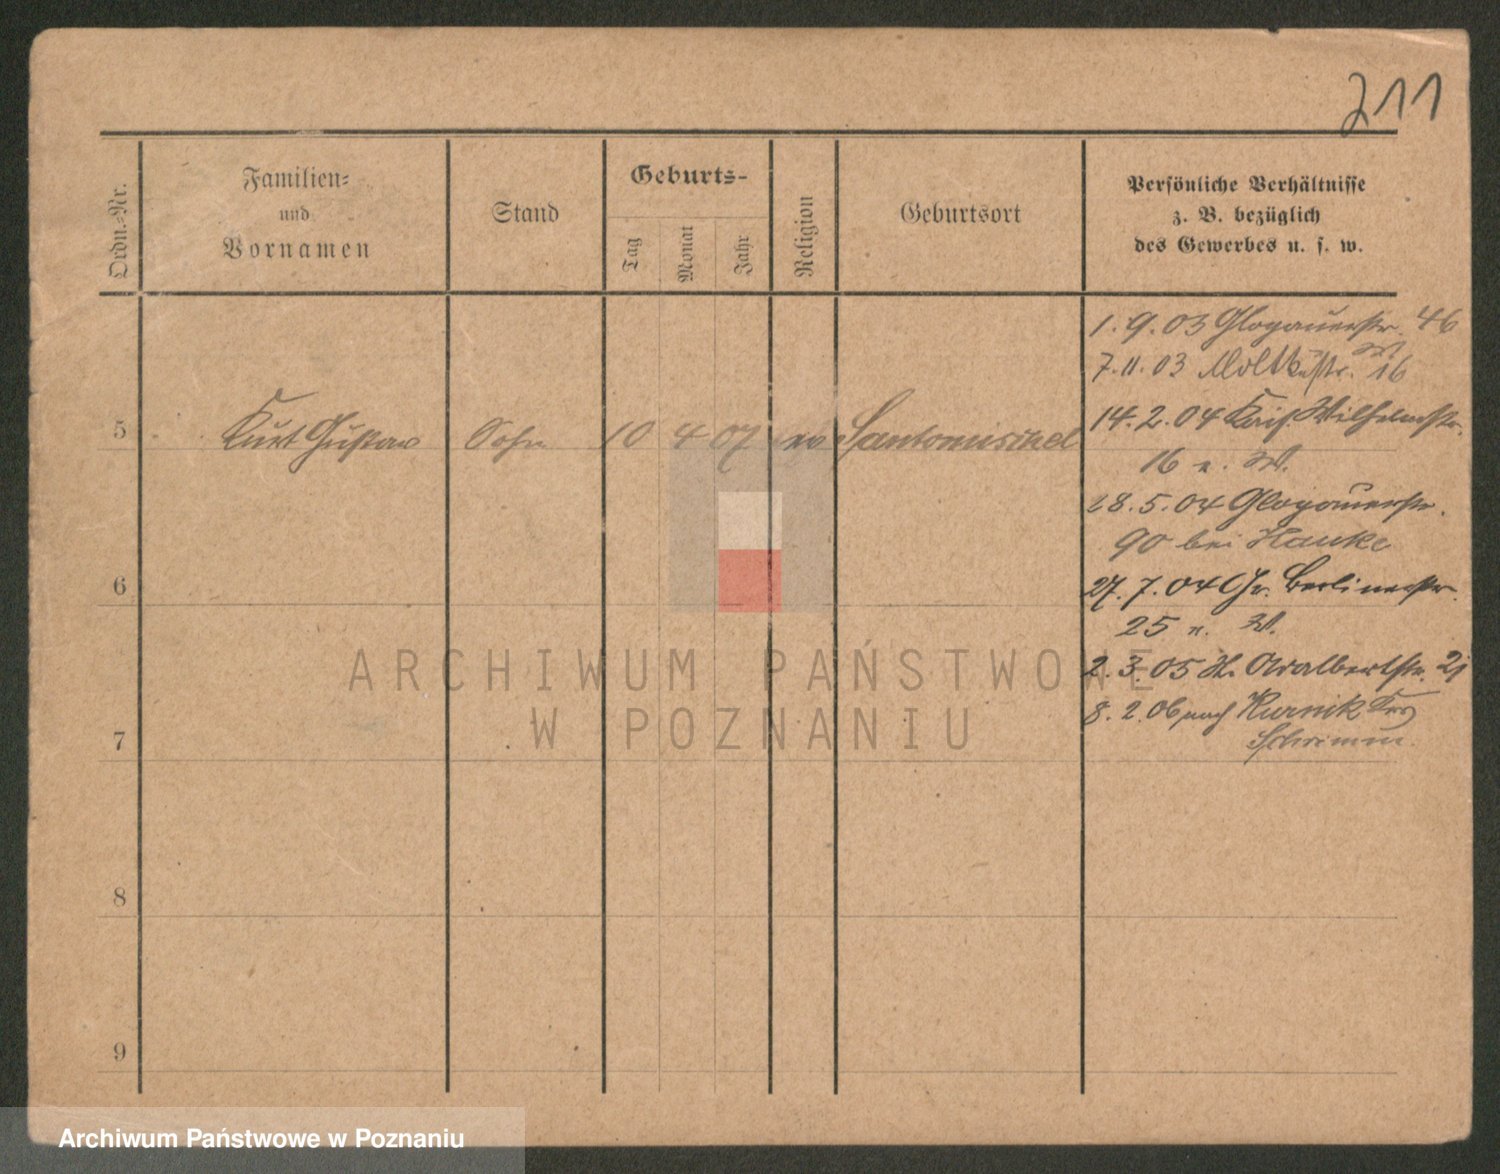 211
Ordn.-Nr.
Familien-
und
Vornamen
Stand
Geburts-
Tag
Monat
Jahr
Religion
Geburtsort
Persönliche Verhältnisse
z. B. bezüglich
des Gewerbes u. s. w.
1.9.03 Glogauerstr. 46
W
7.11.03 Moltkestr. 16
5 Kurt Gustav Sohn 10 4 07 ev Santomischel
14.2.04 Kais. Wilhelmstr.
16 n. W.
28.5.04 Glogauerstr.
90 bei Hauke
6
27.7.04 Gr. Berlinerstr.
25 n. W.
2.3.05 H. Adalbertstr. 21
8.2.06 nach Kurnik Krs
Schrimm
7
8
9
ARCHIWUM PAŃSTWOWE
W POZNANIU
Archiwum Państwowe w Poznaniu